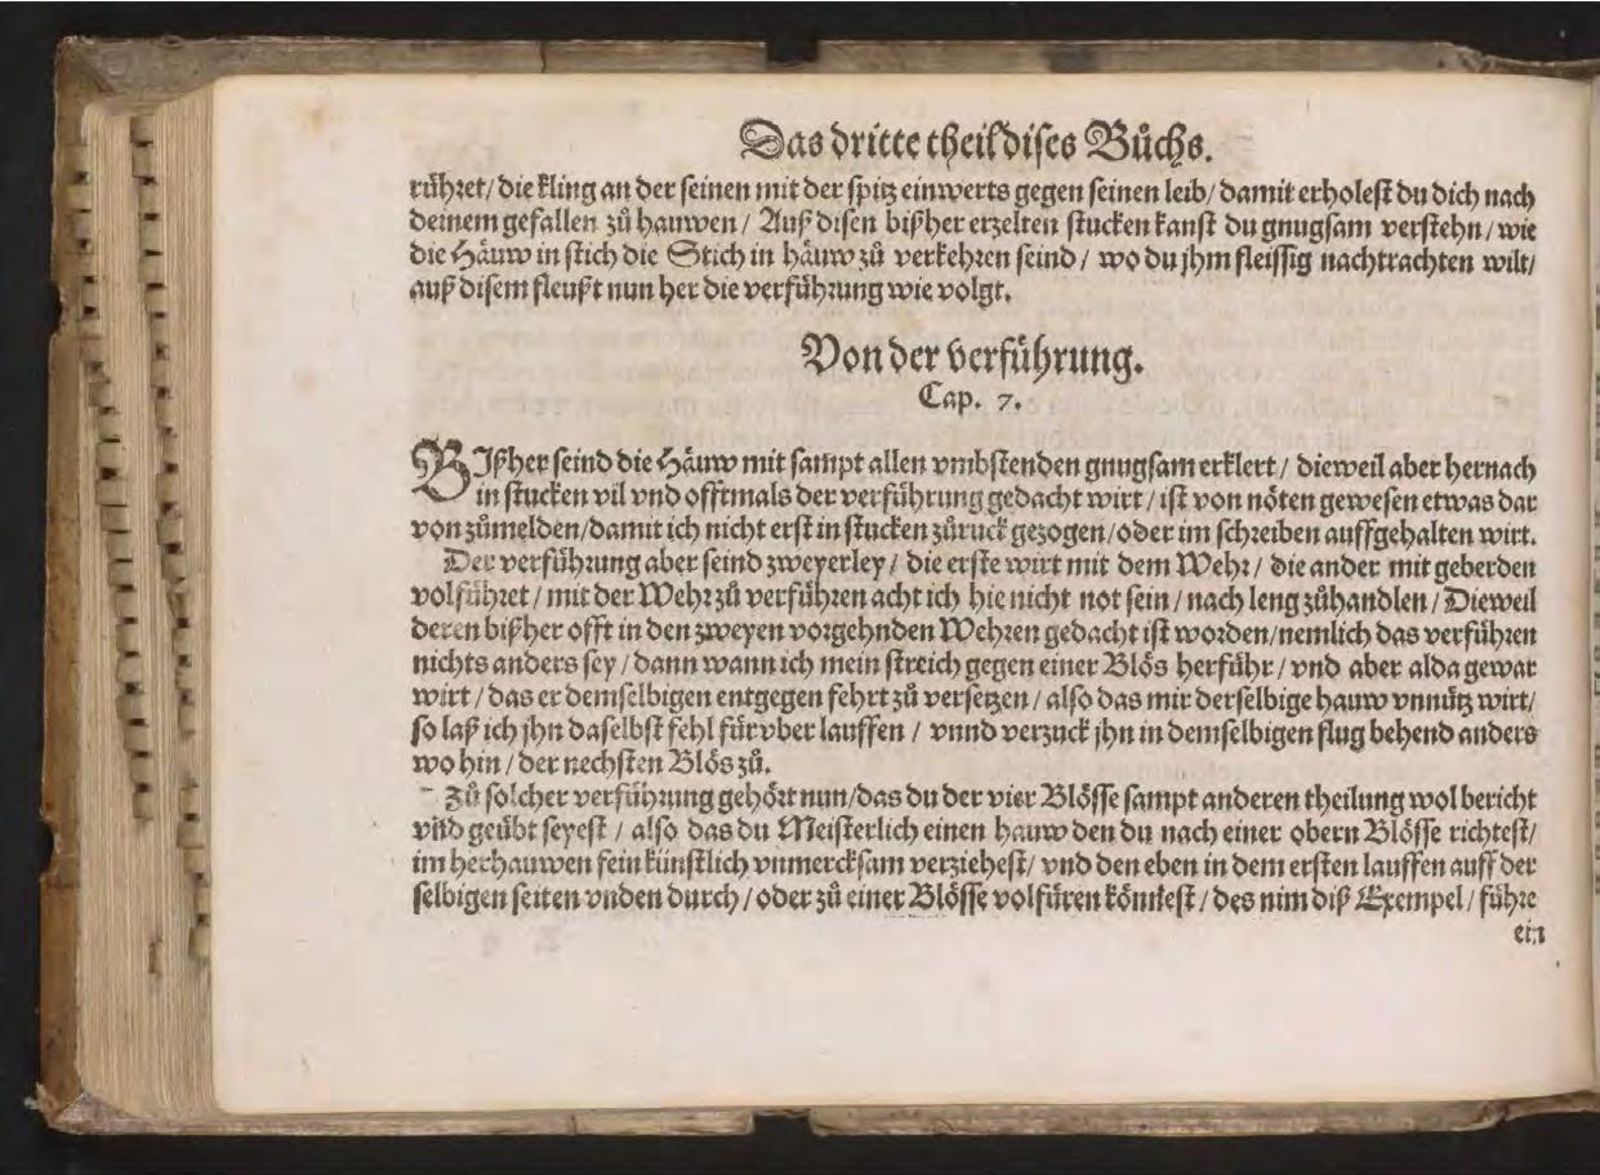 Das dritte theil dises Bůchs.
rühret/ die kling an der seinen mit der spitz einwerts gegen seinen leib/ damit erholest du dich nach
deinem gefallen zů hauwen/ Auß disen bißher erzelten stucken kanst du gnugsam verstehn/ wie
die Häuw in stich die Stich in häuw zů verkehren seind/ wo du jhm fleissig nachtrachten wilt/
auß disem fleußt nun her die verführung wie volgt.
Von der verführung.
Cap. 7.
BIßher seind die Häuw mit sampt allen vmbstenden gnugsam erklert/ dieweil aber hernach
in stucken vil vnd offtmals der verführung gedacht wirt/ ist von nöten gewesen etwas dar
von zůmelden/damit ich nicht erst in stucken zůruck gezogen/oder im schreiben auffgehalten wirt.
Der verführung aber seind zweyerley/ die erste wirt mit dem Wehr/ die ander mit geberden
volführet/ mit der Wehr zů verführen acht ich hie nicht not sein/ nach leng zůhandlen/ Dieweil
deren bißher offt in den zweyen vorgehnden Wehren gedacht ist worden/nemlich das verführen
nichts anders sey/ dann wann ich mein streich gegen einer Blös herführ/ vnd aber alda gewar
wirt/ das er demselbigen entgegen fehrt zů versetzen/ also das mir derselbige hauw vnnütz wirt/
so laß ich jhn daselbst fehl für vber lauffen/ vnnd verzuck jhn in demselbigen flug behend anders
wo hin/ der nechsten Blös zů.
Zů solcher verführung gehört nun/das du der vier Blösse sampt anderen theilung wol bericht
vnd geübt seyest/ also das du Meisterlich einen hauw den du nach einer obern Blösse richtest/
im herhauwen fein künstlich vnmercksam verziehest/ vnd den eben in dem ersten lauffen auff der
selbigen seiten vnden durch/ oder zů einer Blösse volfüren köntest/ des nim diß Exempel/ führe
ein